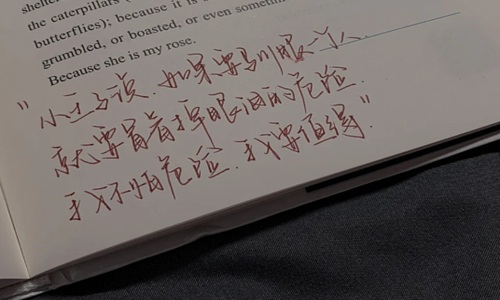 shelter
the caterpillars
butterflies); because it is
grumbled, or boasted, or even sometim
Because she is my rose.
"小王子说.如果要驯服一个人.
就要冒着掉眼泪的危险.
我不怕危险.我要值得."